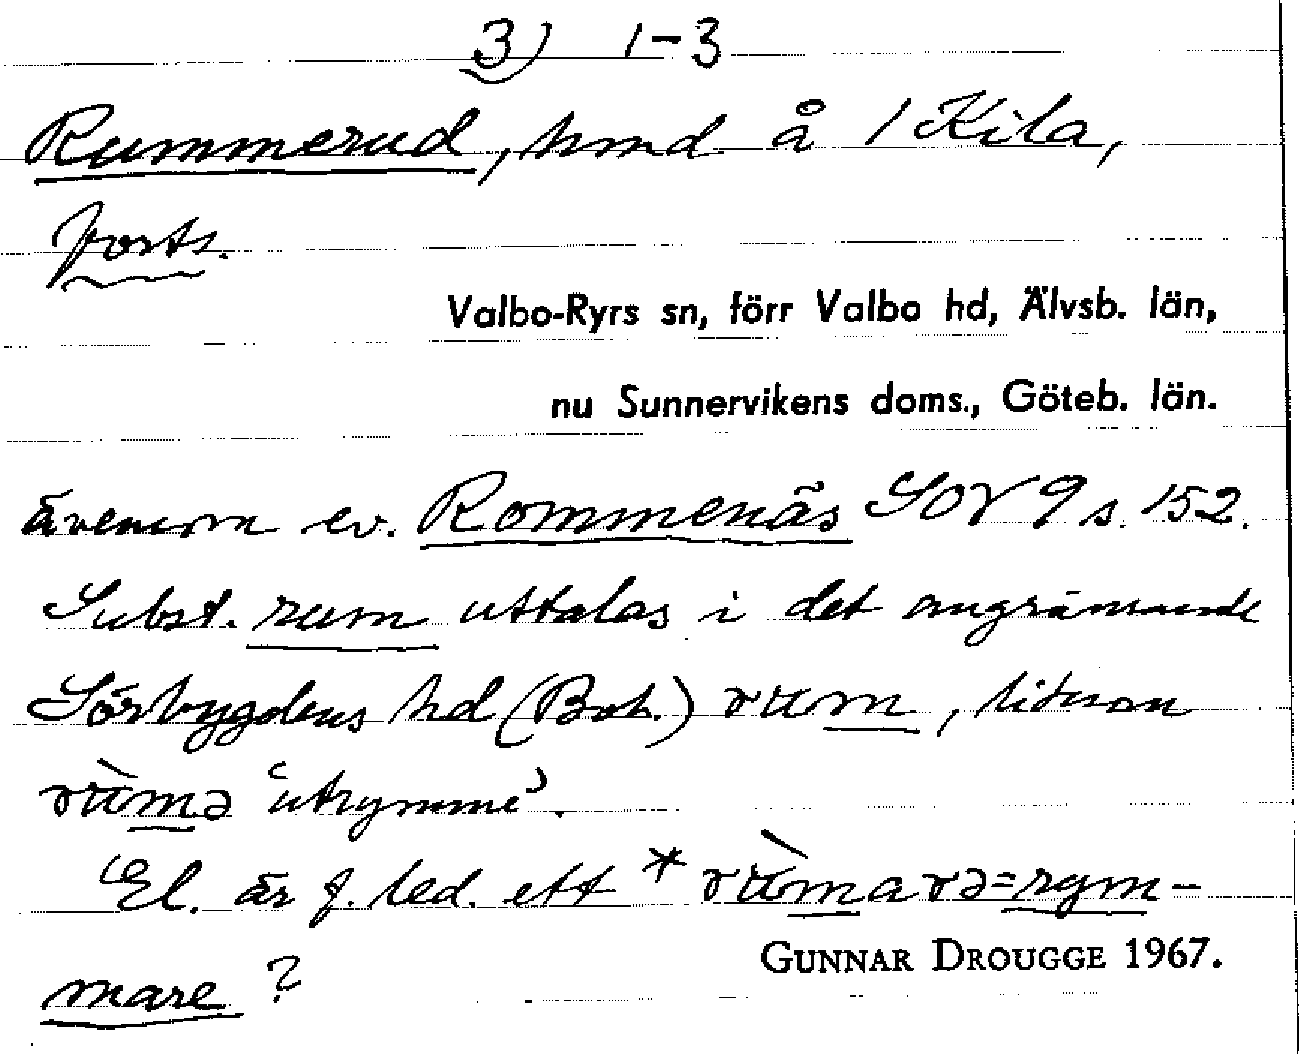 3) 1-3
Rummerud, hmd å 1 Kila,
forts.
Valbo-Ryrs sn, förr Valbo hd, Älvsb. län,
nu Sunnervikens doms., Göteb. län.
ävensom ev. Rommenäs SOV 9 s. 152.
Subst. rum uttalas i det angränsande
Sörbygdens hd (Boh.) rum, liksom
rùmə 'utrymme'.
El. är f. led. ett *rùmarə=rym-
mare?
GUNNAR DROUGGE 1967.